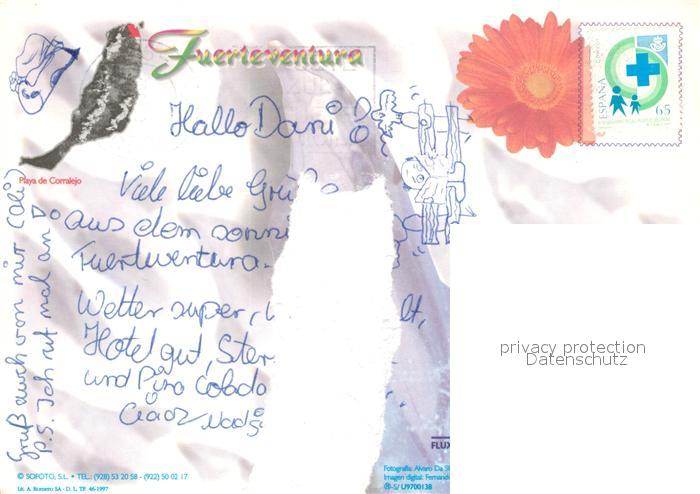 Fuerteventura
ESPAÑA
65
Hallo Dani!
Playa de Corralejo
Viele liebe Grü
aus dem sonni
Fuerteventura.
Wetter super,
Hotel gut,
und Pina Colada
Ciao
Gruß auch von mir (Oli)
P.S. Ich ruf mal an
privacy protection
Datenschutz
FLUX
© SOFOTO, S.L. • TEL.: (928) 53 20 58 - (922) 50 02 17
Lit. A. Romero SA - D. L. TF. 46-1997
Fotografía: Alvaro Da Si
Imagen digital: Fernand